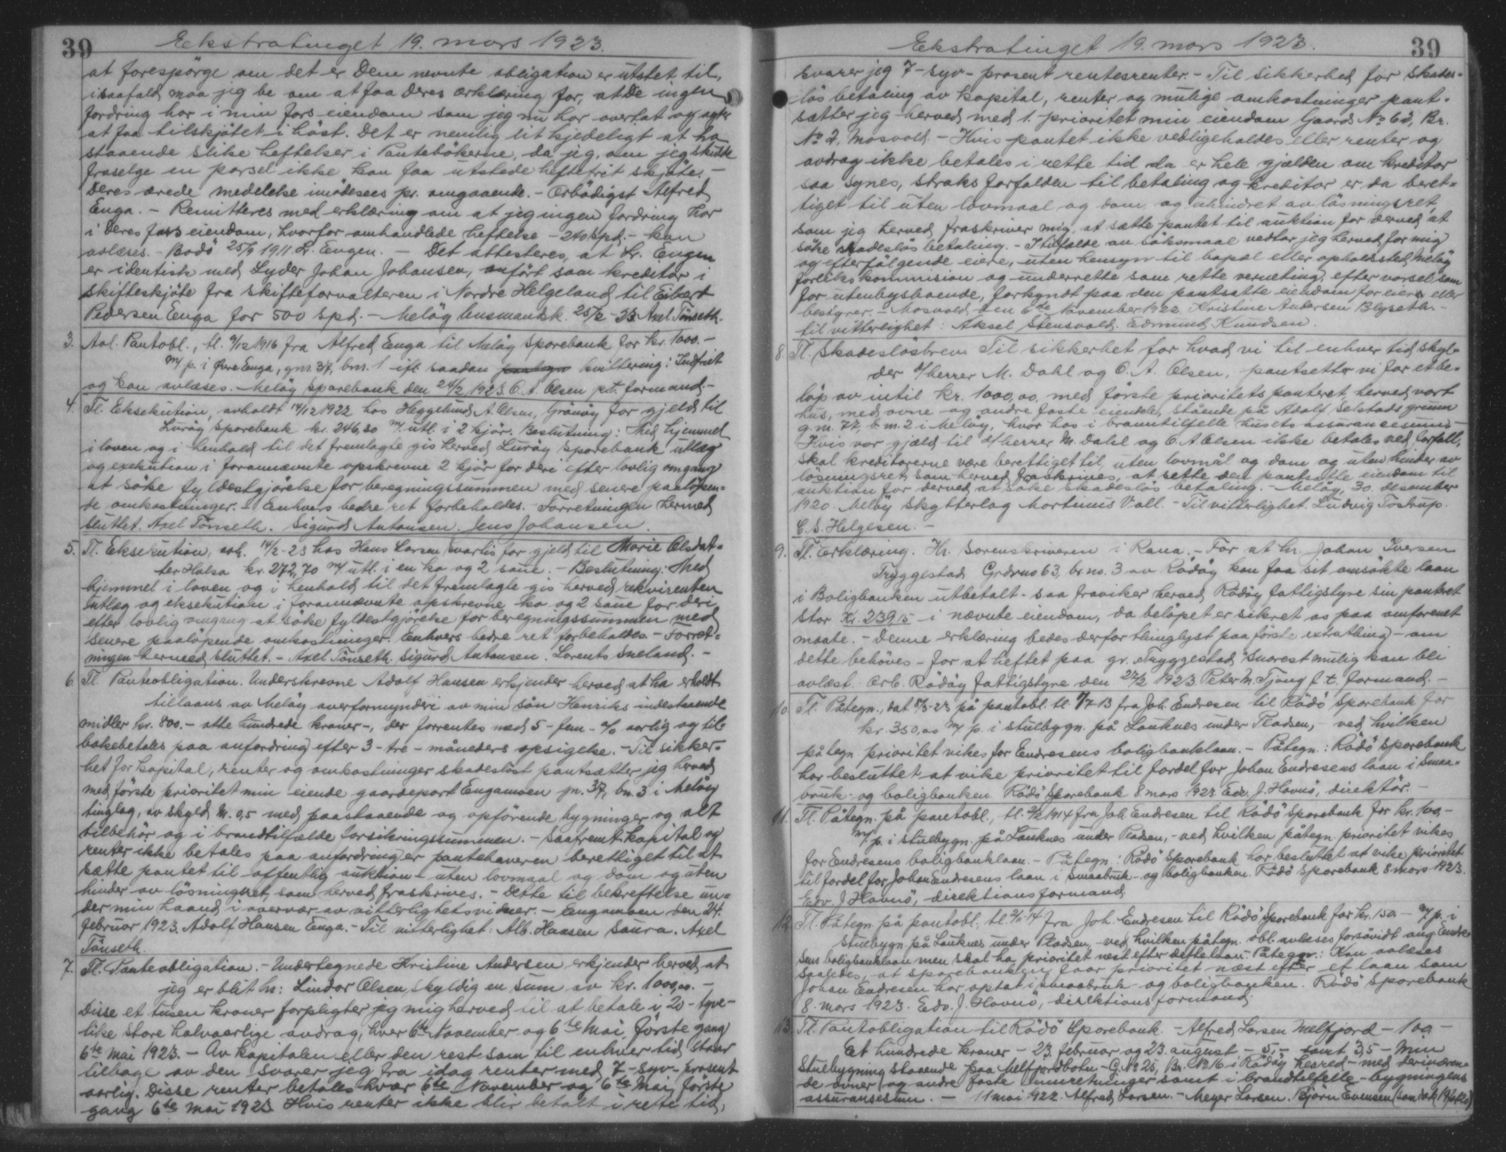 39
Ekstratinget 19. mars 1923.
at forespörge om det er Dem nevnte obligation er utstet til,
isaafald maa jeg be om at faa Deres erklæring for, at De ingen
fordring har i min fars eiendom som jeg nu har overtat og agter
at faa tilskjötet i höst. Det er nemlig lit kjedeligt at ha
staaende slike heftelser i Pantebökerne, da jeg, om jeg skulde
fraselge en parsel ikke kan faa utstede heftefrit skjöte. -
Deres ærede meddelelse imötesees pr. omgaaende. - Ærbödigst Alfred
Enga. - Remitteres med erklæring om at jeg ingen fordring har
i Deres fars eiendom, hvorfor omhandlede heftelse - 240 Spd. - kan
avlæses. - Bodö 25/9 1911 L. Engen. - Det attesteres, at L. Engen
er identisk med Lyder Johan Johansen, anfört som kreditor i
Skifteskjöte fra skifteforvalteren i Nordre Helgeland til Eibert
Pedersen Enga for 500 Spd. - Melöy lensmandsk. 25/2 - 23 Axel Tönseth.
3. Avl. Pantobl., tl. 9/12 1916 fra Alfred Enga til Melöy Sparebank for kr. 1000. -
m/ p. i Övre Enga, gnr. 37, bnr. 1 ifl. saadan kvittering: Indfriet
og kan avlæses. Melöy sparebank den 24/2 1923 O. A. Olsen p.t. formand. -
4. Tl. Eksekution, avholdt 14/12 1922 hos Heggelund A. Olsen, Grönöy for gjeld til
Luröy Sparebank kr. 246,20 m/ utl. i 2 kjör. Beslutning: Med hjemmel
i loven og i henhold til det fremlagte gis herved Luröy Sparebank utlæg
og exekution i forannævnte opskrevne 2 kjör for deri efter lovlig omgang
at söke fyldestgjörelse for beregningssummen med senere paalöpen-
de omkostninger. - Enhvers bedre ret forbeholdes. - Forretningen hermed
sluttet. Axel Tönseth. Sigurd Antonsen. Jens Johansen.
5. Tl. Eksekution, avh. 14/2 - 23 hos Hans Larsen for gjeld til Marie Olsdat-
ter Halsa kr. 272,70 m/ utl. i en ko og 2 saue. - Beslutning: Med
hjemmel i loven og i henhold til det fremlagte gis herved rekvirenten
utlæg og eksekution i forannævnte opskrevne ko og 2 saue for deri
efter lovlig omgang at söke fyldestgjörelse for beregningssummen med
senere paalöpende omkostninger. Enhvers bedre ret forbeholdes - Forret-
ningen hermed sluttet. - Axel Tönseth. Sigurd Antonsen. Lorents Sneland. -
6. Tl. Panteobligation. Underskrevne Adolf Hansen erkjender herved at ha erholdt
tillaans av Melöy overformynderi av min sön Henriks indestaaende
midler kr. 800. - otte hundrede kroner -, der forrentes med 5 - fem - % aarlig og til-
bakebetales paa anfordring efter 3 - tre - maaneders opsigelse. - Til sikker-
het for kapital, renter og omkostninger skadeslöst pantsætter jeg herved
med förste prioritet min eiende gaardepart Engamoen gn. 37, bn. 3 i Melöy
tinglag, av skyld M. 0,5 med paastaaende og opförende bygninger og alt
tilbehör og i brandtilfælde forsikringssummen. - Saafremt kapital og
renter ikke betales paa anfordring er panthaveren berettiget til at
sætte pantet til offentlig auktion uten lovmaal og dom og uten
hinder av lösningsret som herved fraskrives. - Dette til bekreftelse un-
der min haand i overvær av vitterlighetsvidner. - Engamoen den 24.
februar 1923. Adolf Hansen Enga. - Til vitterlighet: Alb. Hansen Saura. Axel
Tönseth
7. Tl. Panteobligation. - Undertegnede Kristine Andersen erkjender herved at
jeg er blit hr: Lindor Olsen, skyldig en sum av kr. 1000,00. -
Disse et tusen kroner forpligter jeg mig herved til at betale i 20 - tyve -
like store halvaarlige avdrag, hver 6te November og 6te Mai, förste gang
6te Mai 1923. - Av kapitalen eller den rest som til enhver tid staar
tilbage av den svarer jeg fra idag renter med 7 - syv - prosent
aarlig. Disse renter betales hver 6te November og 6te Mai, förste
gang 6te Mai 1923 Hvis renter ikke blir betalt i rette tid,
39
Ekstratinget 19. mars 1923.
svarer jeg 7 - syv - prosent rentesrenter. - Til sikkerhed for skades-
lös betaling av kapital, renter og mulige omkostninger pant-
sætter jeg herved med 1. prioritet min eiendom Gaards No 62, Br.
No 2, Mosvold. - Hvis pantet ikke vedligeholdes eller renter og
avdrag ikke betales i rette tid da er hele gjælden om kreditor
saa synes, straks forfalden til betaling og kreditor er da beret-
tiget til uten lovmaal og dom og uhindret av lösningsret,
som jeg herved fraskriver mig, at sætte pantet til auktion for derved at
söke skadeslös betaling. - I tilfælde av söksmaal vedtar jeg herved for mig
og efterfölgende eiere, uten hensyn til bopæl eller opholdssted, Melöy
forlikskommission og underrette som rette verneting, efter varsel som
for utenbysboende, forkyndt paa den pantsatte eiendom for eiere eller
bestyrer. - Mosvold den 6te November 1922 Kristine Andersen Blyseth. -
til vitterlighet: Aksel Stensvold. Edmund Knudsen.
8. Tl. Skadeslösbrev. Til sikkerhet for hvad vi til enhver tid skyl-
der a/herrer M. Dahl og O. A. Olsen, pantsetter vi for et be-
löp av intil kr. 1000,00, med förste prioritets panteret herved vort
hus, med ovne og andre faste eiendele, stående på Adolf Selstads grunn
g. nr. 77, b. nr. 2 i Melöy, hvor hos i branntilfelle husets assuransesum -
Hvis vor gjæld til a/herrer M. Dahl og O. A. Olsen ikke betales ved forfall,
skal kreditorerne være berettiget til, uten lovmål og dom og uten hinder av
lösningsret, som herved fraskrives, at sette den pantsatte eiendom til
auktion for derved at söke skadeslös betaling. - Melöy den 30. desember
1920. Melöy Skytterlag Mortinus Vall. - Til vitterlighet: Ludvig Tostrup.
C. S. Helgesen. -
9. Tl. Erklæring. Hr. Sorenskriveren i Rana. - For at hr. Johan Iversen
Tryggestad Grdsno 63, br. no. 3 av Rödöy kan faa sit ansökte laan
i Boligbanken utbetalt. saa fraviker herved Rödöy fattigstyre sin panteret
stor Kr. 239,15 i nævnte eiendom, da belöpet er sikret os paa anförenet
maate. - Denne erklæring bedes derfor tinglyst paa förste ekstrating - om
dette behöves - for at heftet paa gr. Tryggestad snarest mulig kan bli
avlæst. Ærb. Rödöy fattigstyre den 27/2 1923 Peter M. Tjong f. t. formand. -
10. Tl. Påtegn., dat 8/3 - 23 på pantobl. tl. 7/7 - 13 fra Joh. Endresen til Rödö Sparebank for
kr. 350,00 m/ p. i stubyggn. på Lauknes under Pladsen, - ved hvilken
påtegn. prioritet vikes for Endresens boligbanklaan. - Påtegn: Rödö Sparebank
har besluttet at vike prioritet til fordel for Johan Endresens laan i Smaa-
bruk - og boligbanken. Rödö Sparebank 8 mars 1923. Edv. J. Havnö, direktör. -
11. Tl. Påtegn. på pantobl., tl. 9/2 1914 fra Joh. Endresen til Rödö Sparebank for kr. 100, -
m/ p. i stubygn. på Lauknes under Pladsen, - ved hvilken påtegn. prioritet vikes
for Endresens boligbanklaan. - Påtegn: Rödö Sparebank har besluttet at vike prioritet
til fordel for Johan Endresens laan i Smaabruk - og boligbanken. Rödö Sparebank 8 mars 1923.
Edv. J. Havnö, direktionsformand
12. Tl. Påtegn på pantobl. tl. fra Joh. Endresen til Rödö Sparebank for kr. 150 - m/ p. i
stubygn. på Lauknes under Pladsen, ved hvilken påtegn. obl. avlæses forsåvidt ang. Endre-
sens boligbanklaan men skal ha prioritet næst efter dette laan. Påtegn: Kan avlæses
saaledes, at sparebanken faar prioritet næst efter et laan som
Johan Endresen har optat i smaabruk - og boligbanken. Rödö Sparebank
8. mars 1923. Edv. J. Havnö, direktionsformand
13. Tl. Pantobligation til Rödö Sparebank. - Alfred Larsen Melfjord - 100 -
Et hundrede kroner - 23. februar og 23. august - 5, - samt 3,5 - Min
Stubygning staaende paa Melfjordbotn - G. No 25, Br. No 16 i Rödöy herred - med deriværen-
de ovner og andre faste innretninger samt i brandtilfelle bygningens
assuransesum. - 11 mai 1922. Alfred Larsen. - Meyer Larsen. Björn Evensen